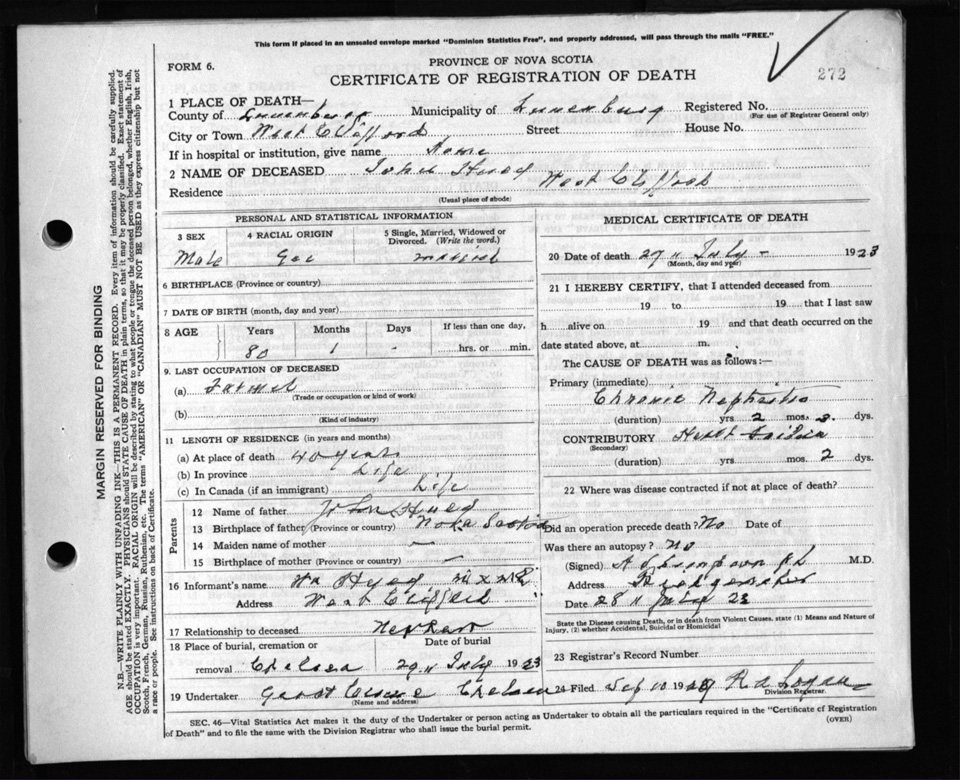 This form if placed in an unsealed envelope marked "Dominion Statistics Free", and properly addressed, will pass through the mails "FREE."
FORM 6.
PROVINCE OF NOVA SCOTIA
CERTIFICATE OF REGISTRATION OF DEATH
272
1 PLACE OF DEATH—
County of Lunenburg Municipality of Lunenburg Registered No.
(For use of Registrar General only)
City or Town West Clifford Street House No.
If in hospital or institution, give name Home
2 NAME OF DECEASED John
Residence West Clifford
(Usual place of abode)
PERSONAL AND STATISTICAL INFORMATION
3 SEX
Male
4 RACIAL ORIGIN
Ger
5 Single, Married, Widowed or Divorced. (Write the word.)
married
6 BIRTHPLACE (Province or country)
7 DATE OF BIRTH (month, day and year)
8 AGE Years Months Days If less than one day,
80 1 - hrs. or min.
9. LAST OCCUPATION OF DECEASED
(a) Farmer
(Trade or occupation or kind of work)
(b)
(Kind of industry)
11 LENGTH OF RESIDENCE (in years and months)
(a) At place of death 40 years
(b) In province Life
(c) In Canada (if an immigrant) Life
Parents
12 Name of father John
13 Birthplace of father (Province or country) Nova Scotia
14 Maiden name of mother —
15 Birthplace of mother (Province or country) —
16 Informant's name Wm
Address West Clifford
17 Relationship to deceased Nephew
18 Place of burial, cremation or removal Chelsea
Date of burial
29 " July 1923
19 Undertaker Chelsea
(Name and address)
MEDICAL CERTIFICATE OF DEATH
20 Date of death 27 " July - 1923
(Month, day and year)
21 I HEREBY CERTIFY, that I attended deceased from
19 to 19 that I last saw
h alive on 19 and that death occurred on the
date stated above, at m.
The CAUSE OF DEATH was as follows:—
Primary (immediate)
Chronic Nephritis
(duration) yrs. 2 mos. dys.
CONTRIBUTORY Heart Failure
(Secondary)
(duration) yrs. mos. 2 dys.
22 Where was disease contracted if not at place of death?
Did an operation precede death? No Date of
Was there an autopsy? No
(Signed) M.D.
Address Bridgewater
Date 28 " July 23
State the Disease causing Death, or in death from Violent Causes, state (1) Means and Nature of Injury, (2) whether Accidental, Suicidal or Homicidal
23 Registrar's Record Number
24 Filed Sep 10 19 R A Logan
Division Registrar.
SEC. 46—Vital Statistics Act makes it the duty of the Undertaker or person acting as Undertaker to obtain all the particulars required in the "Certificate of Registration of Death" and to file the same with the Division Registrar who shall issue the burial permit.
(OVER)
MARGIN RESERVED FOR BINDING
N.B.—WRITE PLAINLY WITH UNFADING INK—THIS IS A PERMANENT RECORD. Every item of information should be carefully supplied.
AGE should be stated EXACTLY. PHYSICIANS should STATE CAUSE OF DEATH in plain terms, so that it may be properly classified. Exact statement of
OCCUPATION is very important. RACIAL ORIGIN will be described by stating to what people or tongue the deceased person belonged, whether English, Irish,
Scotch, French, German, Russian, Ruthenian, etc. The terms "AMERICAN" OR "CANADIAN" MUST NOT BE USED as they express citizenship but not
a race or people. See instructions on back of Certificate.